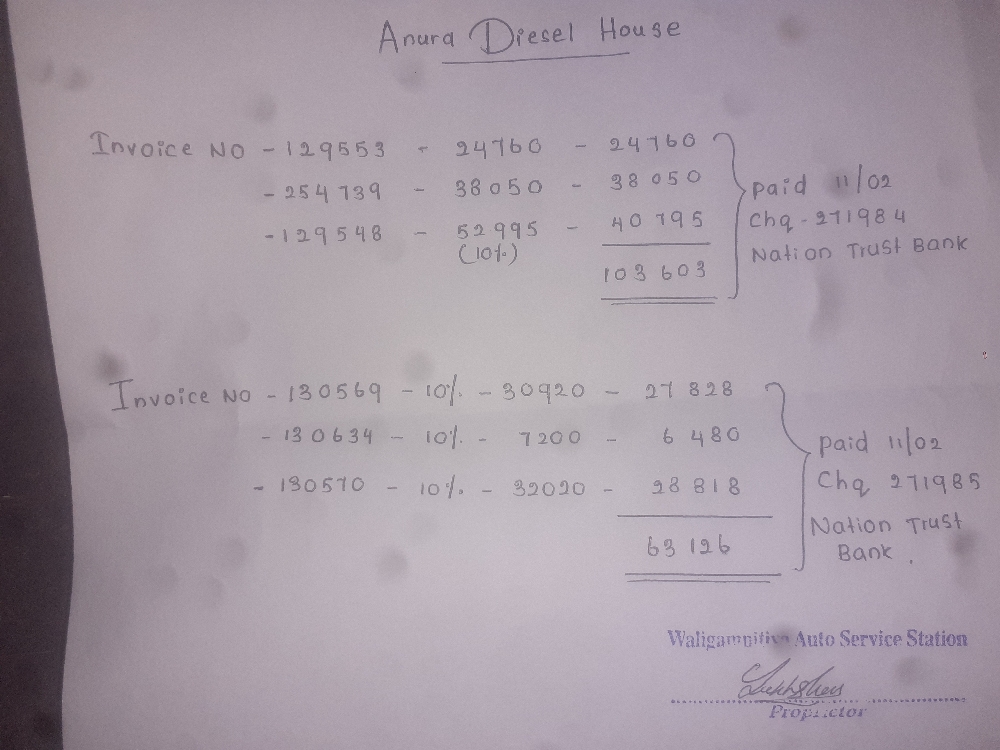 Anura Diesel House
Invoice NO - 129553 - 24760 - 24760
- 254739 - 38050 - 38050
- 129548 - 52995 - 40795
(10%)
103 603
paid 11/02
Chq - 271984
Nation Trust Bank
Invoice NO - 130569 - 10% - 30920 - 27 828
- 130634 - 10% - 7200 - 6 480
- 130570 - 10% - 32020 - 28 818
63 126
paid 11/02
Chq 271985
Nation Trust
Bank .
Auto Service Station
Proprietor